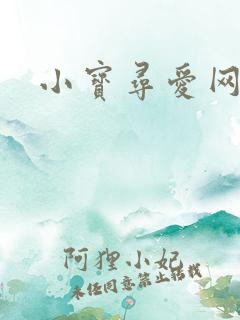 小寳尋愛网
阿狸小妃
未经同意禁止转载